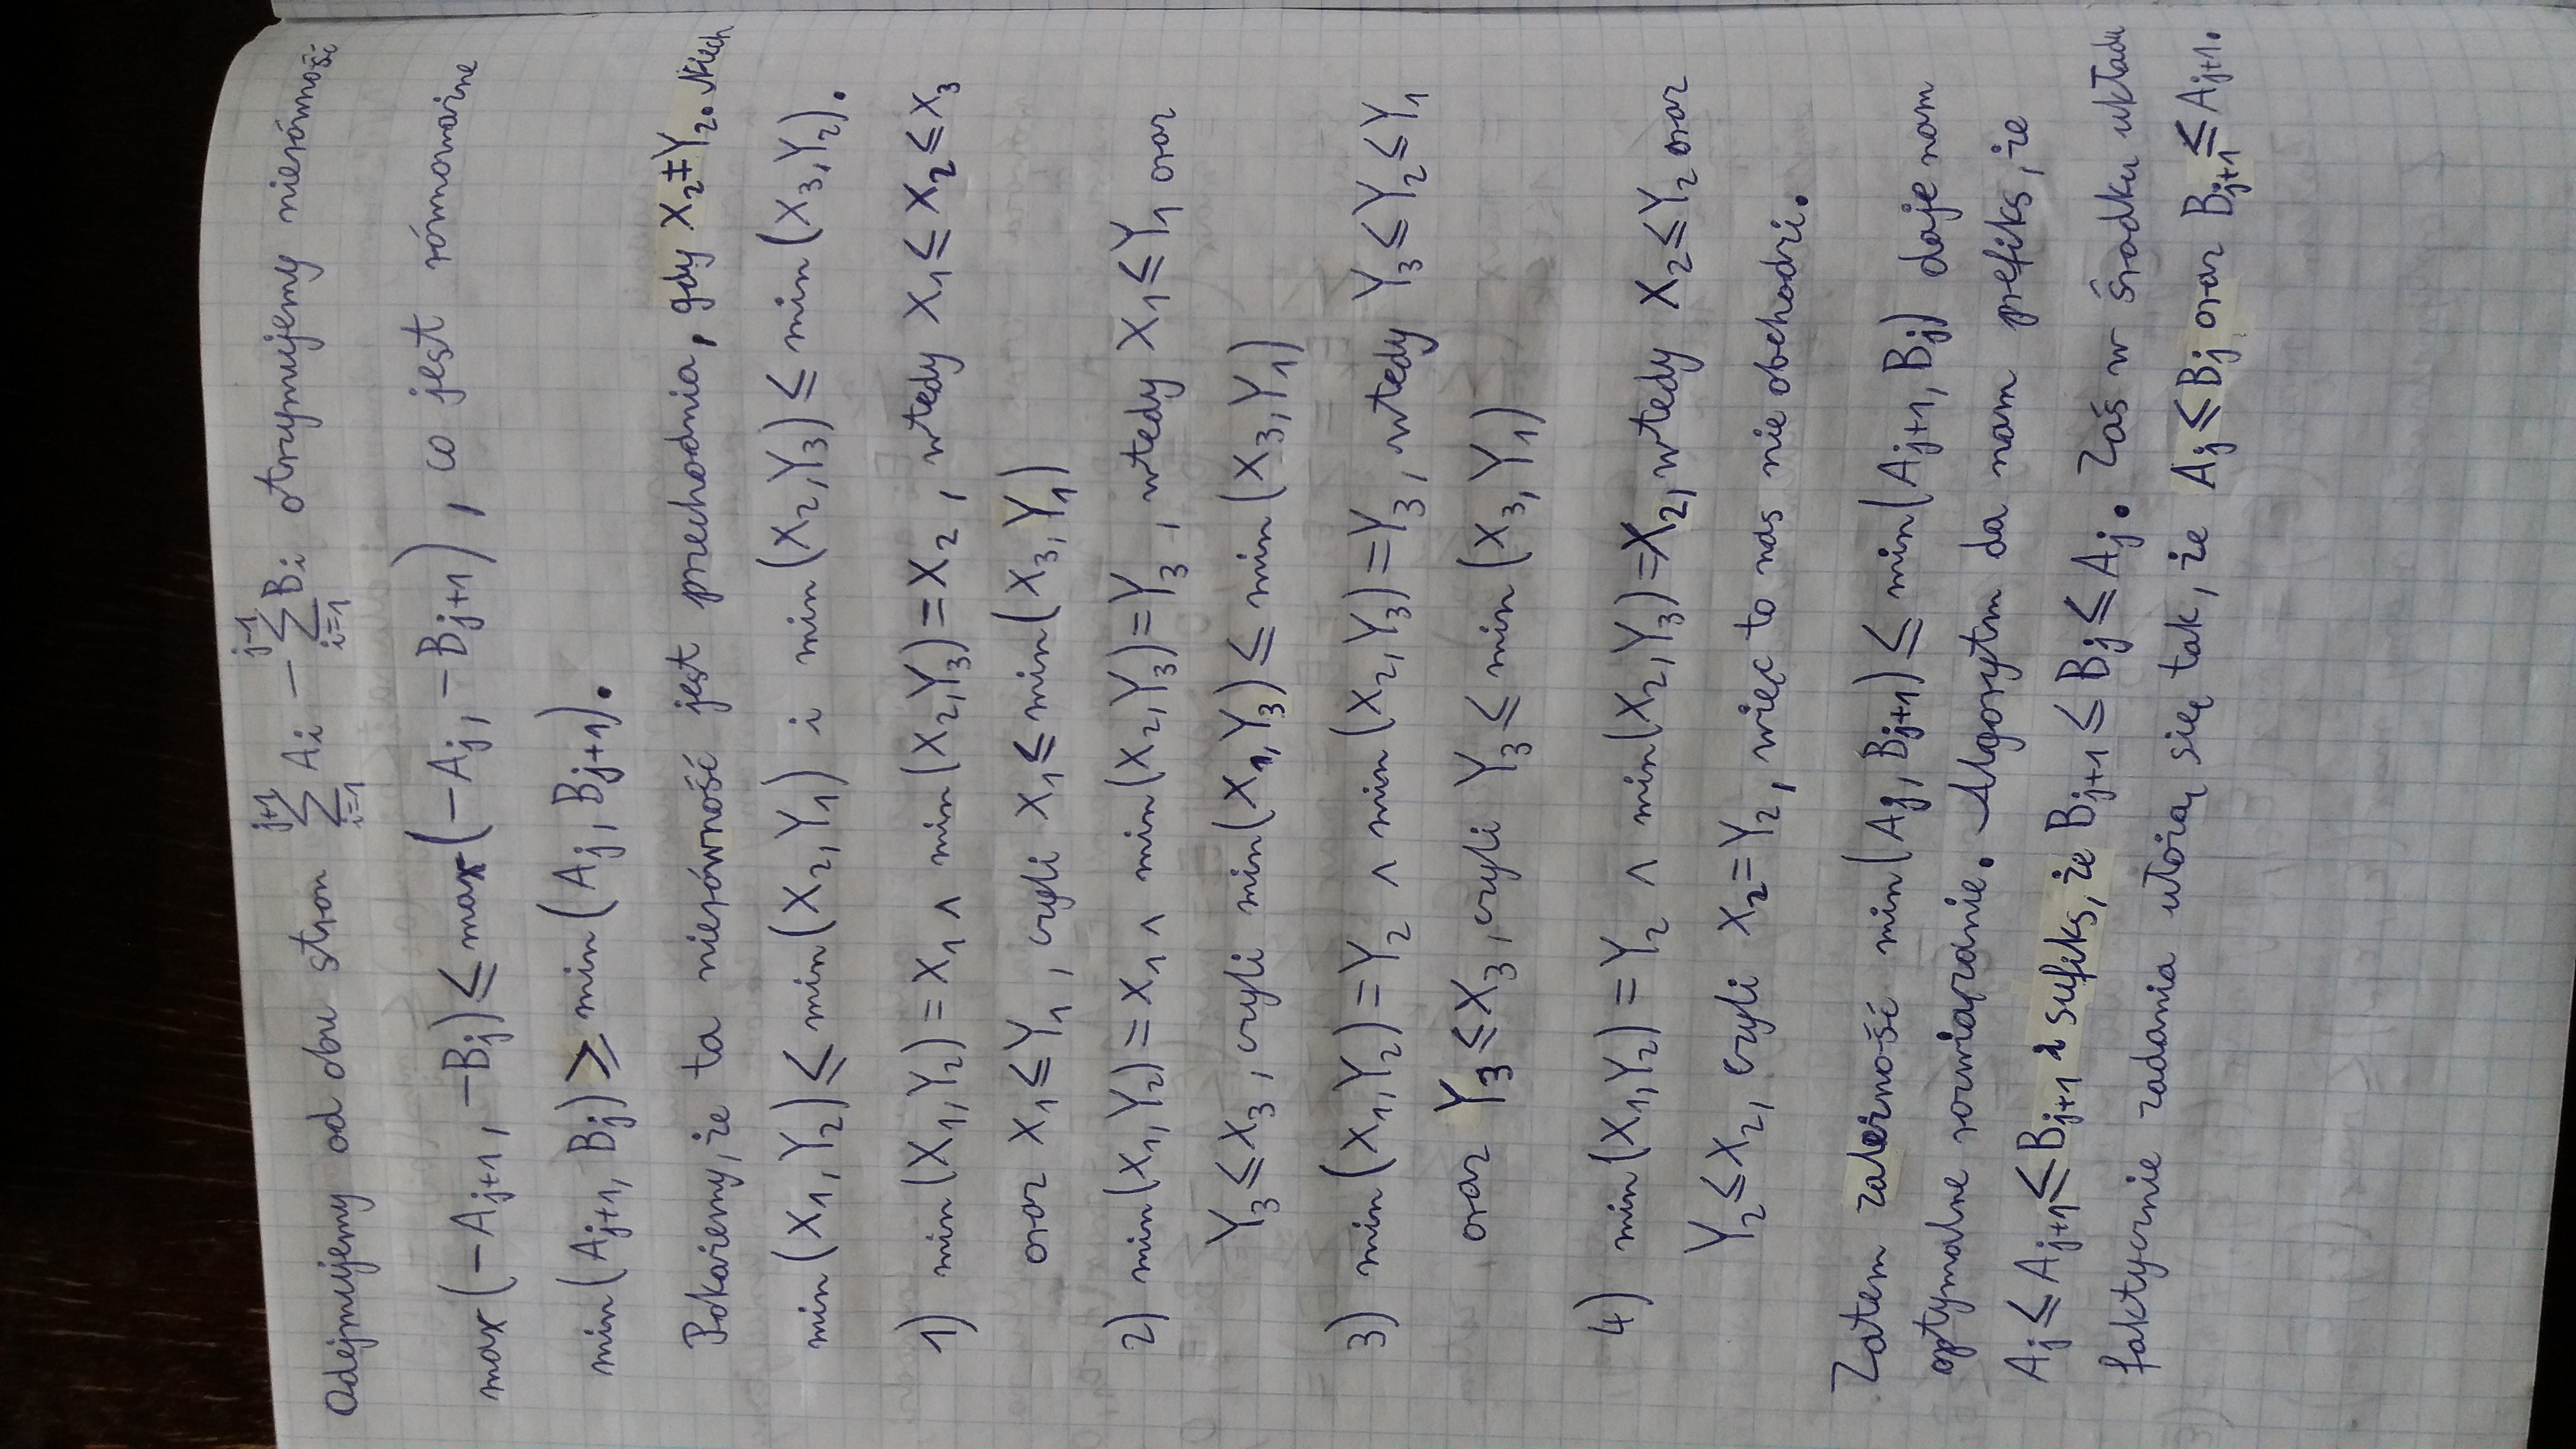 Odejmujemy od obu stron $\sum_{i=1}^{j+1} A_i - \sum_{i=1}^{j-1} B_i$ otrzymujemy nierówność
max(-A_{j+1}, -B_j) ≤ max(-A_j, -B_{j+1}), co jest równoważne
min(A_{j+1}, B_j) ≥ min(A_j, B_{j+1}).
Pokażemy, że ta nierówność jest przechodnia, gdy X_2 ≠ Y_2. Niech
min(X_1, Y_2) ≤ min(X_2, Y_1) i min(X_2, Y_3) ≤ min(X_3, Y_2).
1) min(X_1, Y_2) = X_1 ∧ min(X_2, Y_3) = X_2, wtedy X_1 ≤ X_2 ≤ X_3
oraz X_1 ≤ Y_1, czyli X_1 ≤ min(X_3, Y_1)
2) min(X_1, Y_2) = X_1 ∧ min(X_2, Y_3) = Y_3, wtedy X_1 ≤ Y_1 oraz
Y_3 ≤ X_3, czyli min(X_1, Y_3) ≤ min(X_3, Y_1)
3) min(X_1, Y_2) = Y_2 ∧ min(X_2, Y_3) = Y_3, wtedy Y_3 ≤ Y_2 ≤ Y_1
oraz Y_3 ≤ X_3, czyli Y_3 ≤ min(X_3, Y_1)
4) min(X_1, Y_2) = Y_2 ∧ min(X_2, Y_3) = X_2, wtedy X_2 ≤ Y_2 oraz
Y_2 ≤ X_2, czyli X_2 = Y_2, więc to nas nie obchodzi.
Zatem zależność min(A_j, B_{j+1}) ≤ min(A_{j+1}, B_j) daje nam
optymalne rozwiązanie. Algorytm da nam prefiks, że
A_j ≤ A_{j+1} ≤ B_{j+1} i sufiks, że B_{j+1} ≤ B_j ≤ A_j. Zaś w środku układu
faktycznie zadania ułożą się tak, że A_j ≤ B_j oraz B_{j+1} ≤ A_{j+1}.